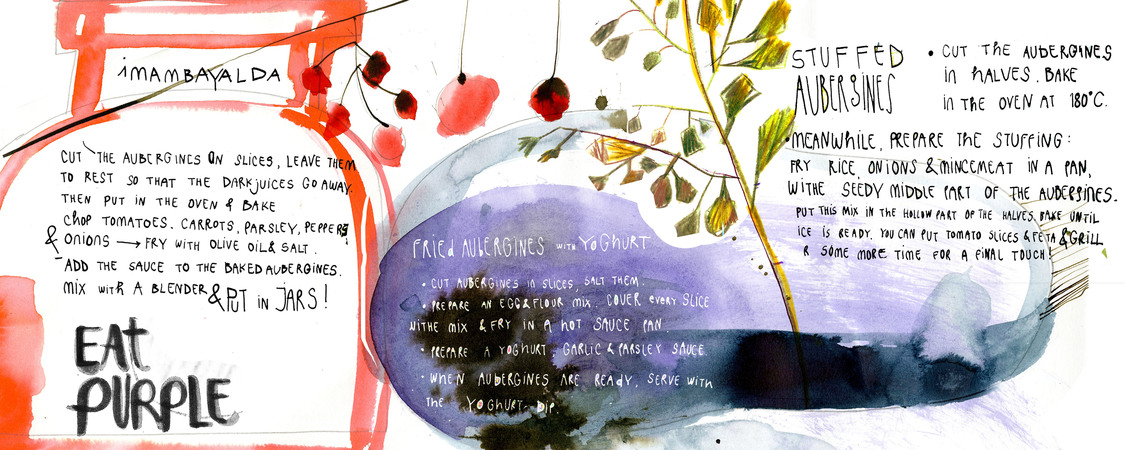 iMAMBAYALDA
CUT THE AUBERGINES ON SLICES, LEAVE THEM
TO REST SO THAT THE DARKJUICES GO AWAY.
THEN PUT IN THE OVEN & BAKE
CHOP TOMATOES. CARROTS, PARSLEY, PEPPERS
& ONIONS → FRY WITH OLIVE OIL & SALT.
ADD THE SAUCE TO THE BAKED AUBERGINES.
MIX WITH A BLENDER & PUT IN JARS!
EAT
PURPLE
FRIED AUBERGINES WITH YOGHURT
• CUT AUBERGINES IN SLICES, SALT THEM.
• PREPARE AN EGG&FLOUR MIX, COVER EVERY SLICE
WITHE MIX & FRY IN A HOT SAUCE PAN.
• PREPARE A YOGHURT, GARLIC & PARSLEY SAUCE
• WHEN AUBERGINES ARE READY, SERVE WITH
THE YOGHURT DIP.
STUFFED
AUBERGINES
• CUT THE AUBERGINES
IN HALVES. BAKE
IN THE OVEN AT 180°C.
• MEANWHILE, PREPARE THE STUFFING:
FRY RICE, ONIONS & MINCEMEAT IN A PAN,
WITHE SEEDY MIDDLE PART OF THE AUBERGINES.
PUT THIS MIX IN THE HOLLOW PART OF THE HALVES. BAKE UNTIL
ICE IS READY. YOU CAN PUT TOMATO SLICES & FETA & GRILL
R SOME MORE TIME FOR A FINAL TOUCH!